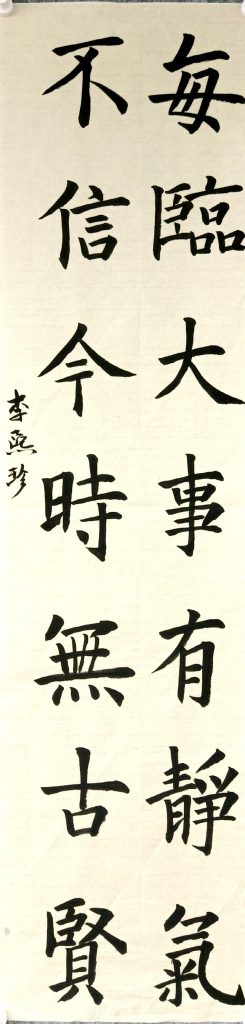 每臨大事有靜氣
不信今時無古賢
李熙珍